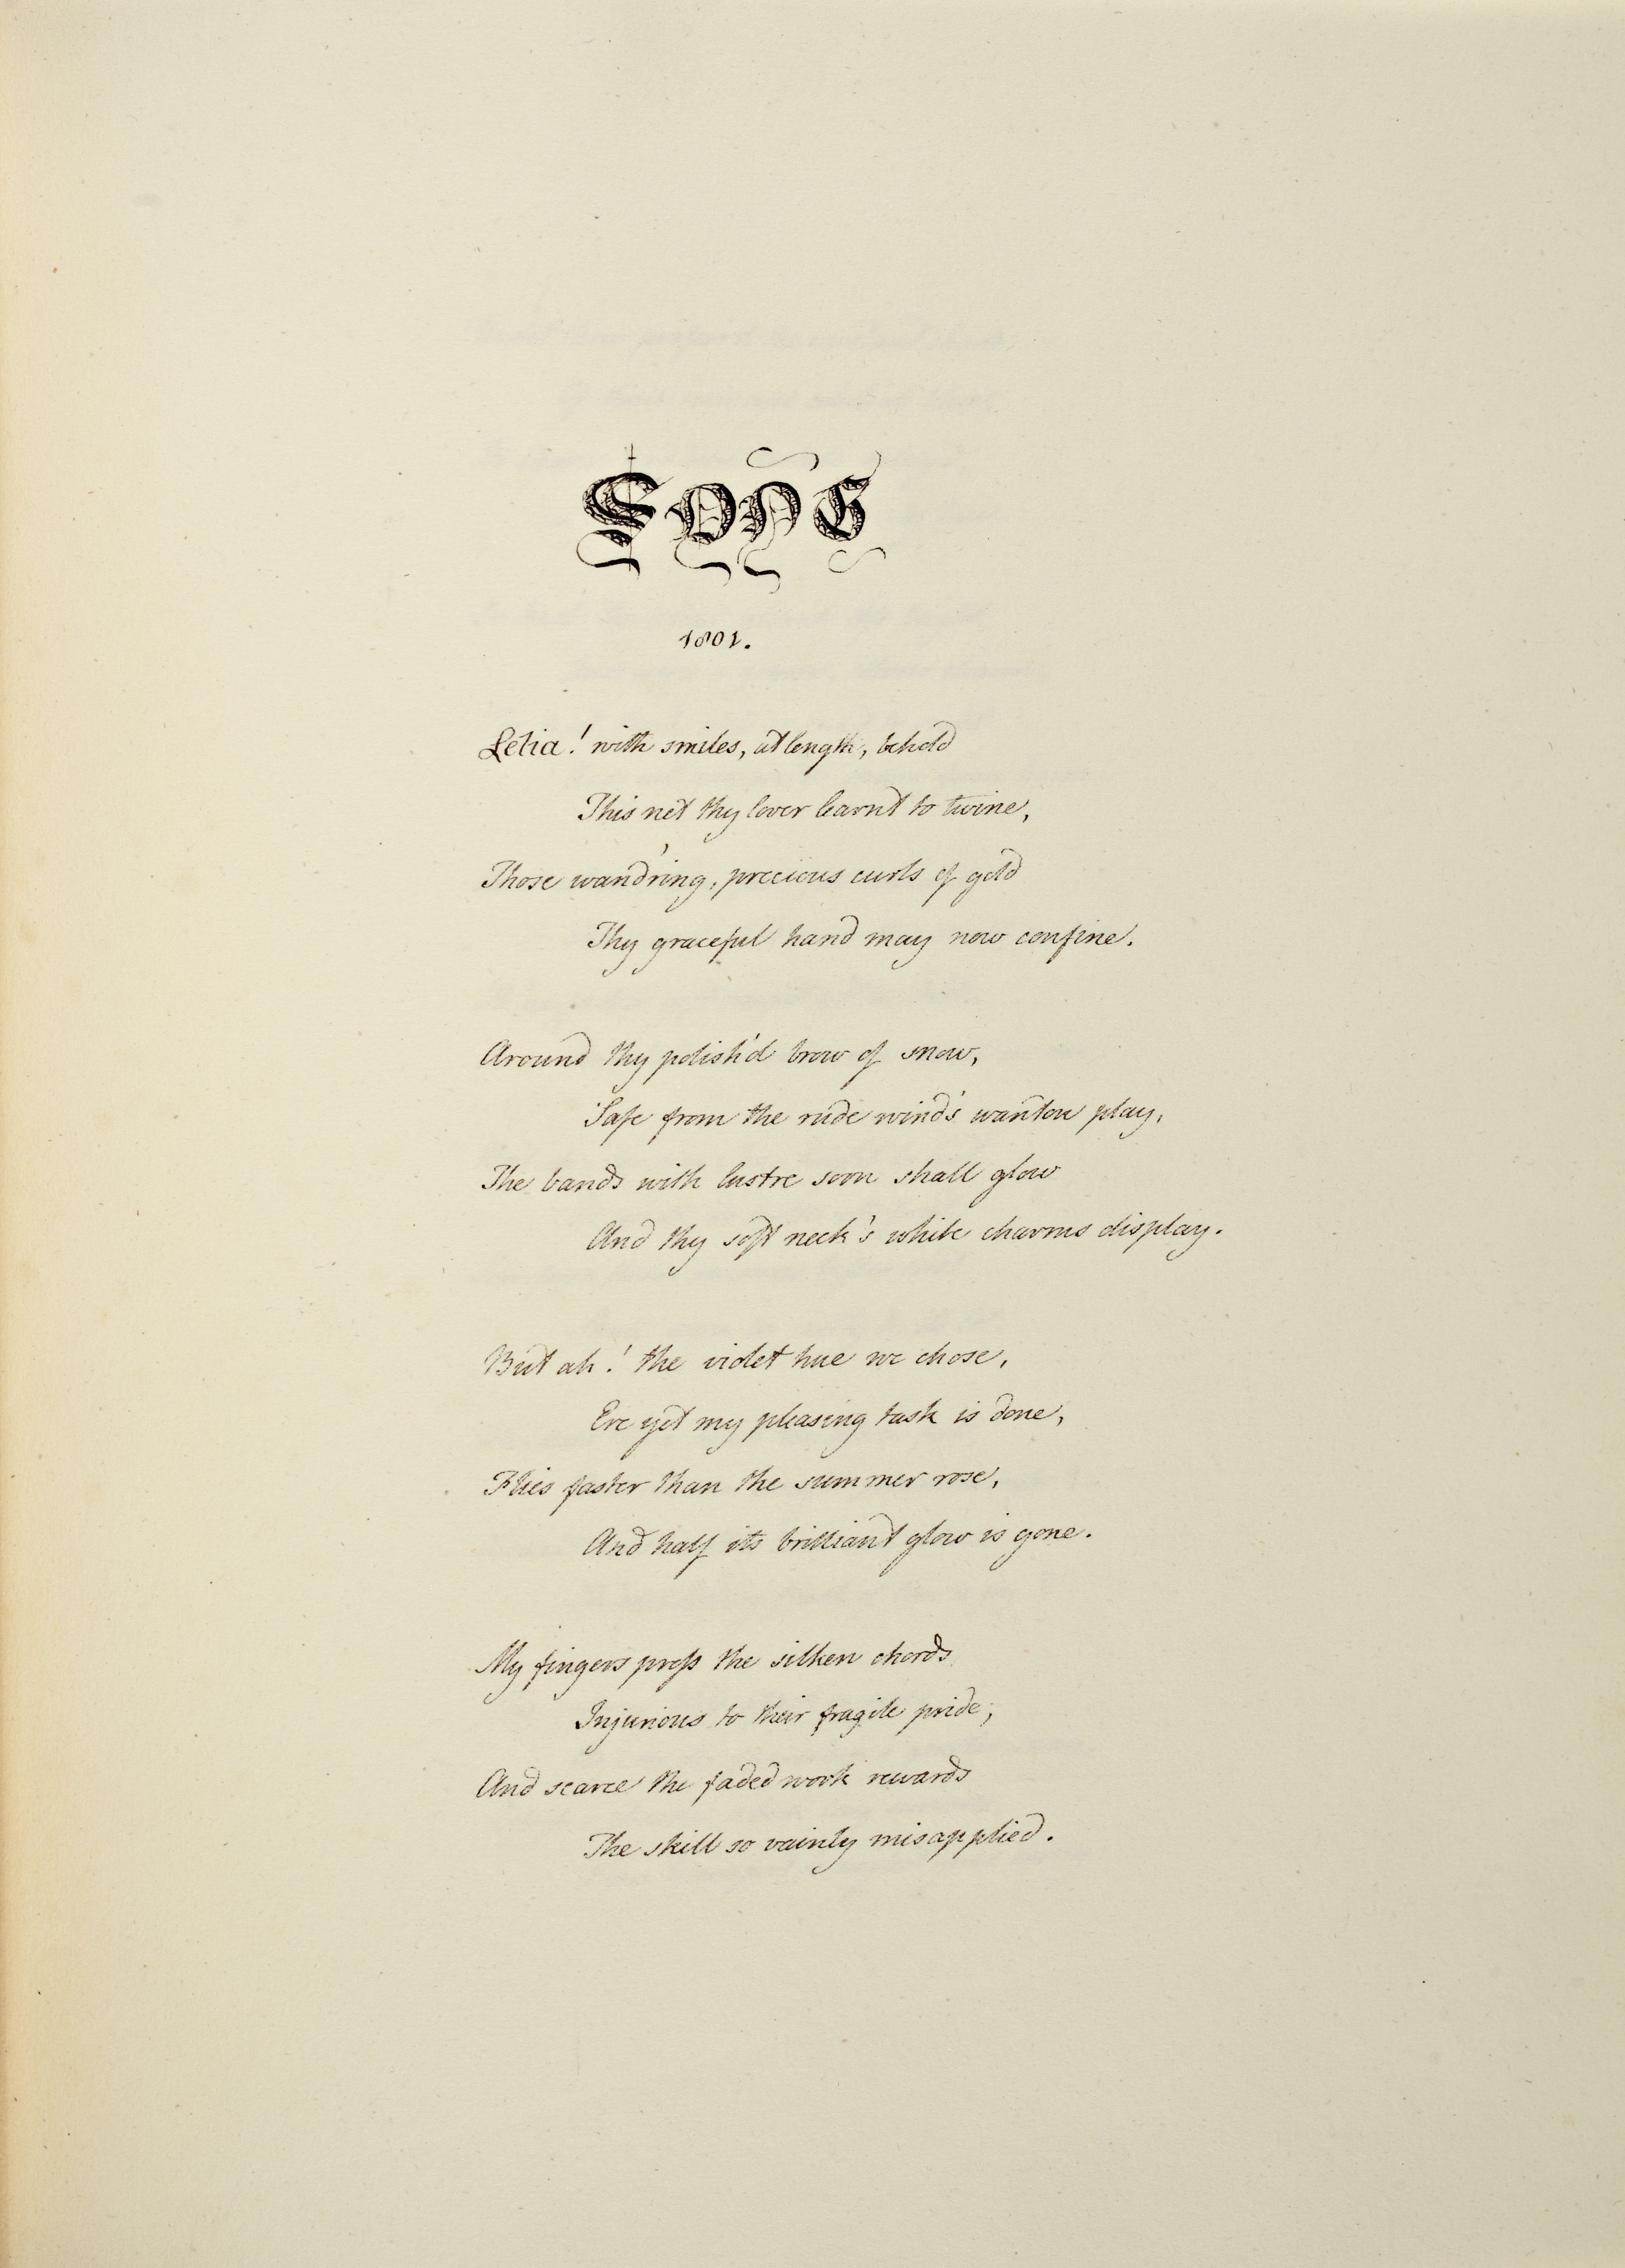 SONG
1801.
Lelia! with smiles, at length, behold
This net thy lover learnt to twine,
Those wand'ring, precious curls of gold
Thy graceful hand may now confine.
Around thy polish'd brow of snow,
Safe from the rude wind's wanton play,
The bands with lustre soon shall glow
And thy soft neck's white charms display.
But ah! the violet hue we chose,
Ere yet my pleasing task is done,
Flies faster than the summer rose,
And half its brilliant glow is gone.
My fingers press the silken chords
Injurious to their fragile pride;
And scarce the faded work rewards
The skill so vainly misapplied.